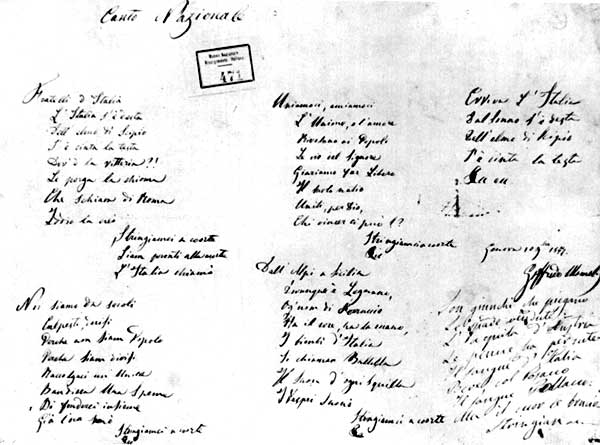 Canto Nazionale
Museo Nazionale
Risorgimento Italiano
471
Fratelli d'Italia
L'Italia s'è desta
Dell'elmo di Scipio
S'è cinta la testa
Dov'è la vittoria?!
Le porga la chioma
Che schiava di Roma
Iddio la creò
Stringiamci a coorte
Siam pronti alla morte
L'Italia chiamò
Noi siamo da secoli
Calpesti, derisi
Perché non siam Popolo
Perché siam divisi
Raccolgaci un'Unica
Bandiera una Speme
Di fonderci insieme
Già l'ora suonò
Stringiamci a coorte
Uniamoci, amiamoci
L'Unione, e l'amore
Rivelano ai Popoli
Le vie del Signore
Giuriamo far Libero
Il suolo natio
Uniti, per Dio,
Chi vincer ci può!?
Stringiamci a coorte
Dall'Alpi a Sicilia
Dovunque è Legnano,
Ogn'uom di Ferruccio
Ha il core, ha la mano,
I bimbi d'Italia
Si chiaman Balilla
Il Suon d'ogni Squilla
I Vespri Suonò
Stringiamci a coorte
Evviva l'Italia
Dal sonno s'è desta
Dell'elmo di Scipio
S'è cinta la testa
Genova
Goffredo Mameli
Son giunchi che piegano
Le spade vendute
L'Aquila d'Austria
Le penne ha perdute
Il sangue d'Italia
Bevé, col Cosacco
Il sangue Polacco
Ma il cuor le bruciò
Stringiamci